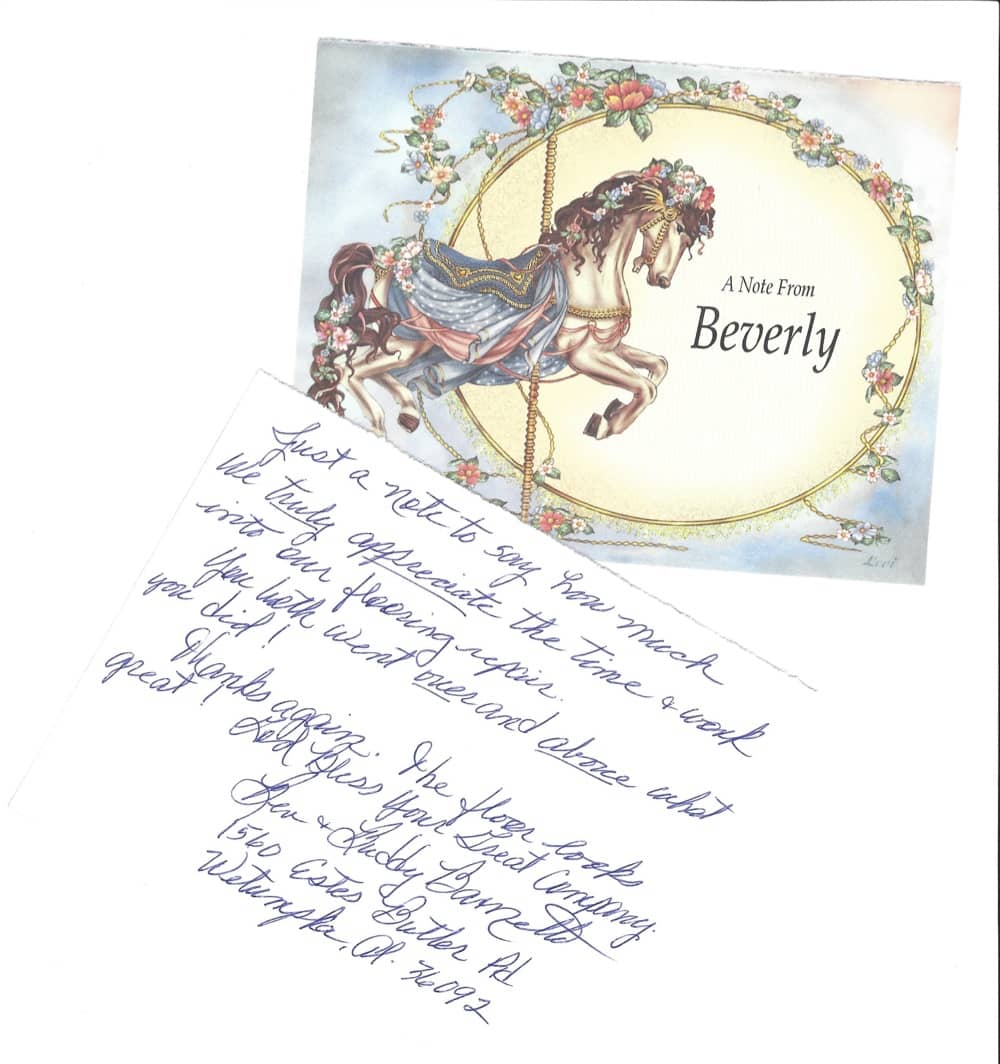 A Note From
Beverly
Levi
Just a note to say how much
we truly appreciate the time & work
into our flooring repair.
You both went over and above what
you did!
Thanks again. The floor looks
great!
God Bliss Your Great Company.
Bev & Buddy Barrett
1560 Estes Butler Rd
Wetumpka, Al. 36092